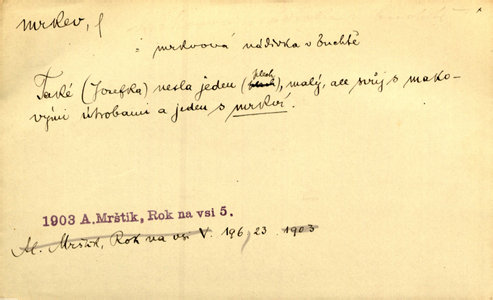 mrkev, f
: mrkvová nádivka v buchtě
Také (Josefka) nesla jeden (plech), malý, ale svůj s mako-
vými útrobami a jeden s mrkví.
1903 A. Mrštík, Rok na vsi 5.
Al. Mrštík, Rok na vsi V. 196, 23 1903